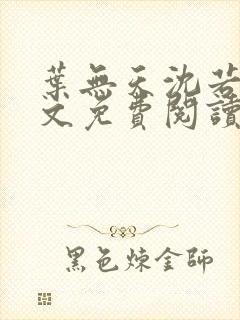 葉無天沈若
文免費閱讀
黑色煉金師